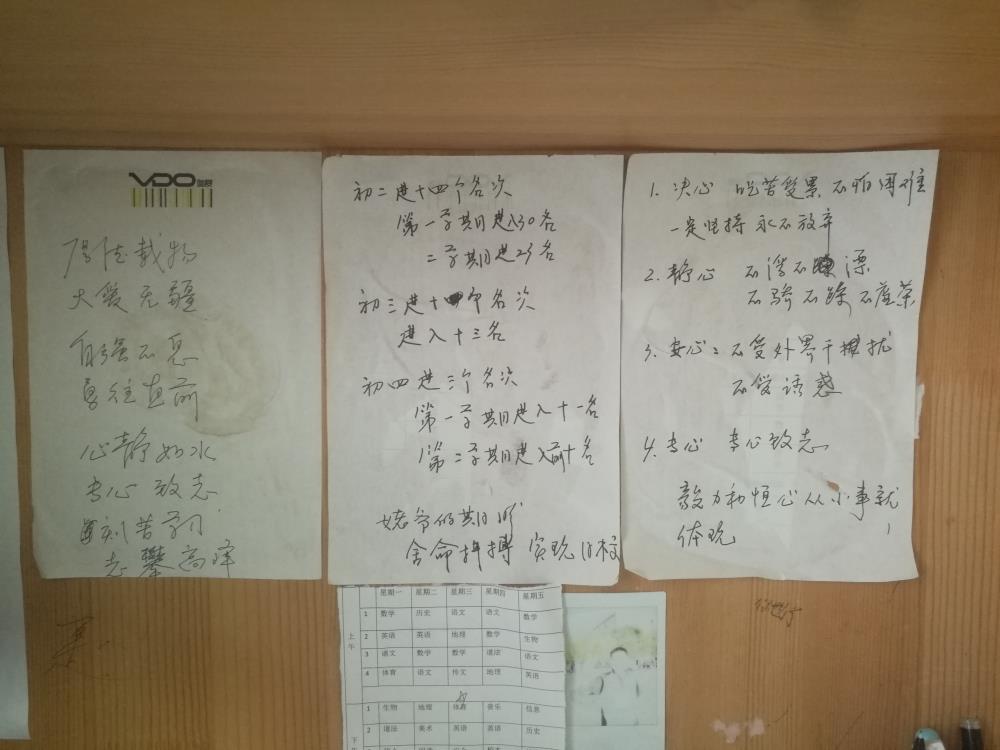 VDO
厚德载物
大爱无疆
自强不息
勇往直前
心静如水
专心致志
刻苦学习
志攀高峰
初二进十四个名次
第一学期进入30名
二学期进23名
初三进十个名次
进入十三名
初四进三个名次
第一学期进入十一名
第二学期进入前十名
姥爷的期盼
舍命拼搏 实现目标
1. 决心 吃苦受累 不怕困难
一定坚持 永不放弃
2. 静心 不浮不漂
不骄不躁 不虚荣
3. 安心: 不受外界干扰
不受诱惑
4. 专心 专心致志
毅力和恒心从小事就
体现
星期一 星期二 星期三 星期四 星期五
上午
1 数学 历史 语文 语文 数学
2 英语 英语 地理 数学 生物
3 语文 数学 数学 道法 语文
4 体育 语文 传文 地理 英语
1 生物 地理 体育 音乐 信息
2 道法 美术 英语 英语 历史
下